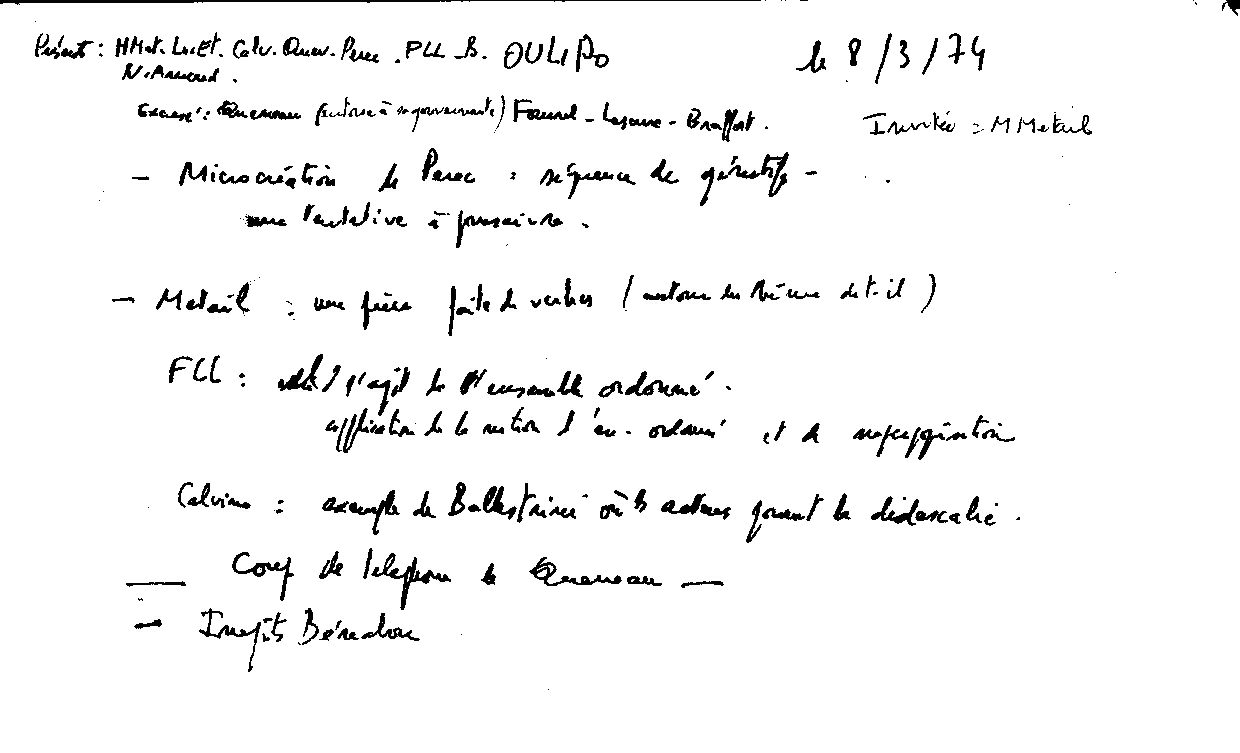 Présents : MMet. Lesct. Calv. Quev. Perec . FLL _ B. OULIPO le 8/3/74
N. Arnaud .
Excusé : Queneau ( à sa gouvernante) Fournel - Lescure - Braffort . Invitée = M Metail
- Microcréation de Perec : séquence de génitifs -
une tentative à poursuivre .
- Metail : une pièce faite de verbes ( autour du thème dit-il )
FLL : il s'agit de l'ensemble ordonné .
application de la notion d'en. ordonné et de
Calvino : exemple de Ballestrini où les acteurs jouent la didascalie .
Coup de telephone de Queneau
- Inédits Bénabou